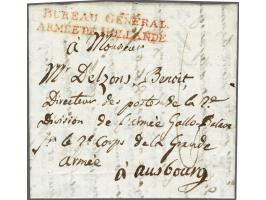 BUREAU GÉNÉRAL
ARMÉE DE HOLLANDE
à Monsieur
Mr Delzons Benoit
Directeur des postes de la 2e
Division de l'armée Gallo-Batave
le 2e Corps de la Grande
armée
à ausbourg